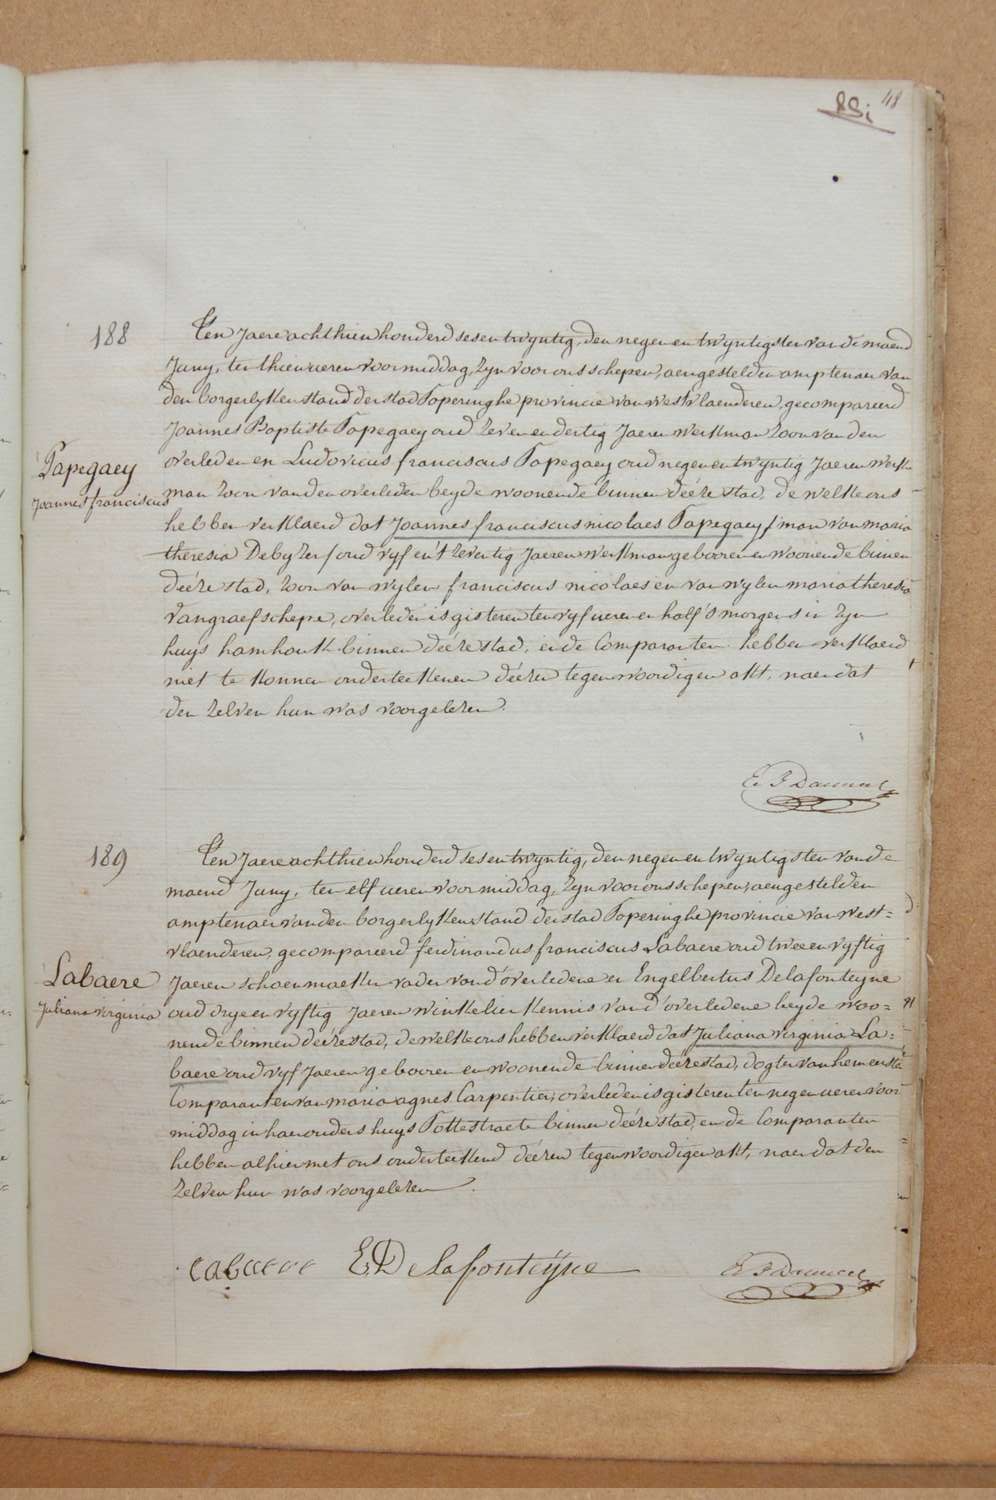 88
48
188
Ten Jaere achthien honderd sesentwyntig, den negenentwyntigsten van de maend
Juny, ten thien ueren voormiddag, zyn voor ons schepen, aengestelden amptenaer van
den borgerlyken stand der stad Poperinghe provincie van westvlaenderen, gecompareerd
Joannes Baptiste Papegaey oud zevenendertig Jaeren werkman zoon van den
overledenen Ludovicus franciscus Papegaey oud negenentwyntig Jaeren werk-
Papegaey
Joannes franciscus
man zoon van den overleden beyde woonende binnen deéze stad, de welke ons
hebben verklaerd dat Joannes franciscus nicolaes Papegaey / man van maria
theresia Debyzer / oud vyf en't zeventig Jaeren werkman gebooren en woonende binnen
deéze stad, zoon van wylen franciscus nicolaes en van wylen maria theresia
Vangraefschepe, overleden is gisteren ten vyf ueren en half 's morgens in zyn
huys hamhoek binnen deéze stad, en de Comparanten hebben verklaerd
niet te konnen onderteekenen deézen tegenwoordigen akt, naer dat
den zelven hun was voorgelezen.
189
Ten Jaere achthien honderd sesentwyntig, den negenentwyntigsten van de
maend Juny, ten elf ueren voormiddag, zyn voor ons schepen, aengestelden
amptenaer van den borgerlyken stand der stad Poperinghe provincie van West=
vlaenderen, gecompareerd ferdinandus franciscus Labaere oud tweeenvyftig
Labaere
Juliana virginia
Jaeren schoenmaeker vader vand'overledene en Engelbertus Delafonteyne
oud dryeenvyftig Jaeren winkelier kennis vand'overledene beyde woo=
nende binnen deéze stad, de welke ons hebben verklaerd dat Juliana virginia La=
baere oud vyf Jaeren gebooren en woonende binnen deéze stad, dogter van hem eersten
Comparant en van maria agnes Carpentier, overleden is gisteren ten negen ueren voor
middag in haer ouders huys Pottestraete binnen deéze stad, en de Comparanten
hebben alhier met ons onderteekend deézen tegenwoordigen akt, naer dat den
zelven hun was voorgelezen.
Labaere E DElafonteÿne